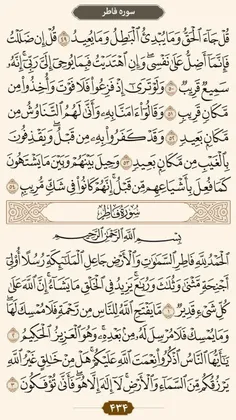 سوره فاطر
قُلْ جَاءَ الْحَقُّ وَمَا يُبْدِئُ الْبَاطِلُ وَمَا يُعِيدُ ٤٩ قُلْ إِن ضَلَلْتُ
فَإِنَّمَا أَضِلُّ عَلَىٰ نَفْسِي وَإِنِ اهْتَدَيْتُ فَبِمَا يُوحِي إِلَيَّ رَبِّي إِنَّهُ
سَمِيعٌ قَرِيبٌ ٥٠ وَلَوْ تَرَىٰ إِذْ فَزِعُوا فَلَا فَوْتَ وَأُخِذُوا مِن
مَّكَانٍ قَرِيبٍ ٥١ وَقَالُوا آمَنَّا بِهِ وَأَنَّىٰ لَهُمُ التَّنَاوُشُ مِن
مَّكَانٍ بَعِيدٍ ٥٢ وَقَدْ كَفَرُوا بِهِ مِن قَبْلُ وَيَقْذِفُونَ
بِالْغَيْبِ مِن مَّكَانٍ بَعِيدٍ ٥٣ وَحِيلَ بَيْنَهُمْ وَبَيْنَ مَا يَشْتَهُونَ
كَمَا فُعِلَ بِأَشْيَاعِهِم مِّن قَبْلُ إِنَّهُمْ كَانُوا فِي شَكٍّ مُّرِيبٍ ٥٤
سُورَةُ فَاطِر
بِسْمِ اللَّهِ الرَّحْمَٰنِ الرَّحِيمِ
الْحَمْدُ لِلَّهِ فَاطِرِ السَّمَاوَاتِ وَالْأَرْضِ جَاعِلِ الْمَلَائِكَةِ رُسُلًا أُولِي
أَجْنِحَةٍ مَّثْنَىٰ وَثُلَاثَ وَرُبَاعَ يَزِيدُ فِي الْخَلْقِ مَا يَشَاءُ إِنَّ اللَّهَ عَلَىٰ
كُلِّ شَيْءٍ قَدِيرٌ ١ مَّا يَفْتَحِ اللَّهُ لِلنَّاسِ مِن رَّحْمَةٍ فَلَا مُمْسِكَ لَهَا
وَمَا يُمْسِكْ فَلَا مُرْسِلَ لَهُ مِن بَعْدِهِ وَهُوَ الْعَزِيزُ الْحَكِيمُ ٢
يَا أَيُّهَا النَّاسُ اذْكُرُوا نِعْمَتَ اللَّهِ عَلَيْكُمْ هَلْ مِنْ خَالِقٍ غَيْرُ اللَّهِ
يَرْزُقُكُم مِّنَ السَّمَاءِ وَالْأَرْضِ لَا إِلَٰهَ إِلَّا هُوَ فَأَنَّىٰ تُؤْفَكُونَ ٣
٤٣٤